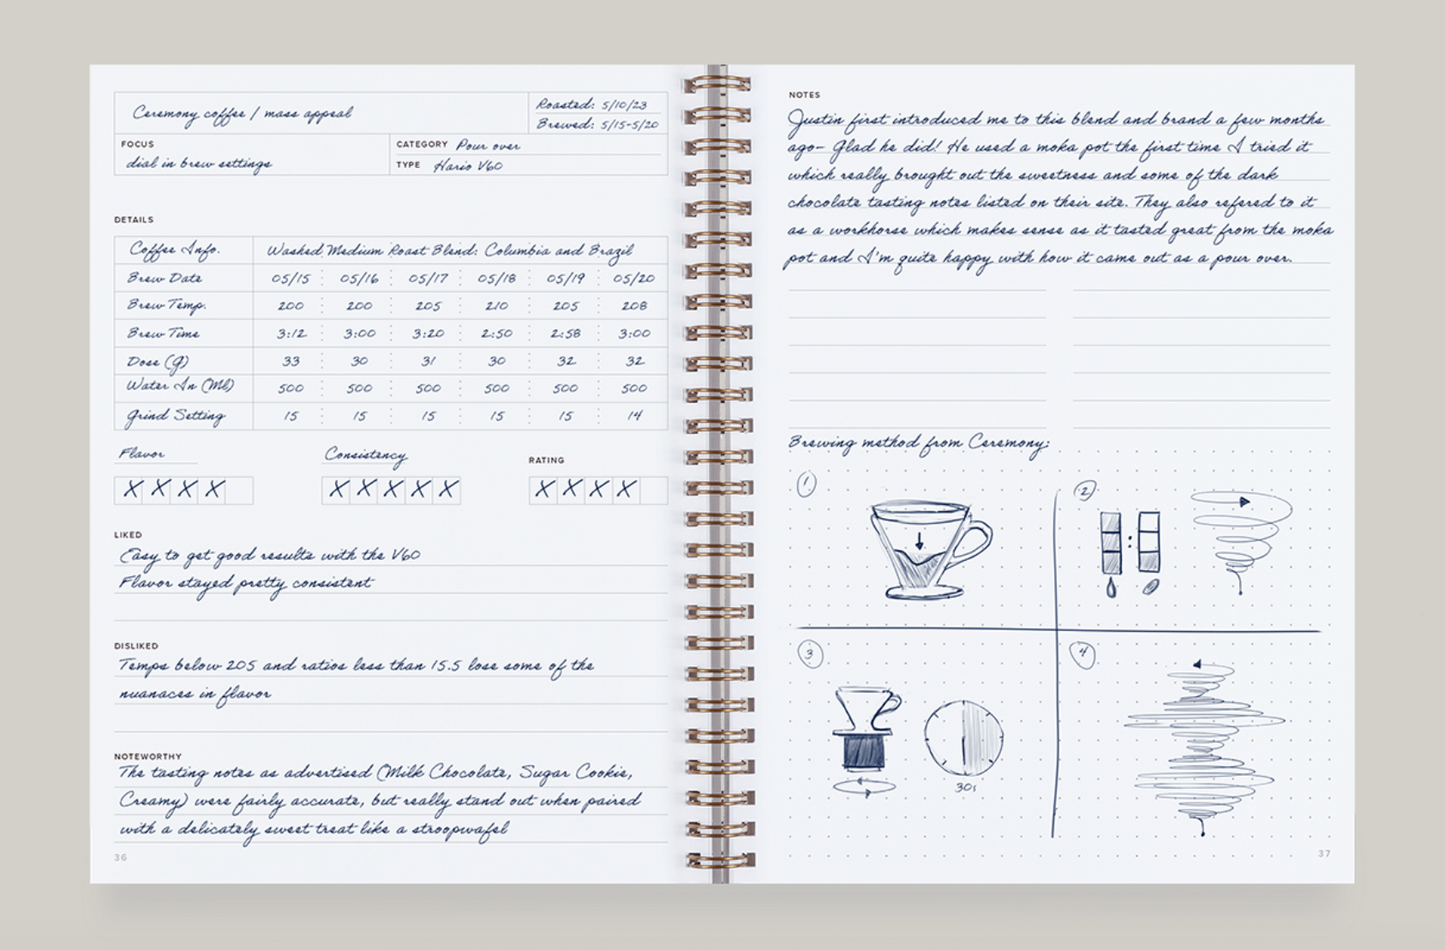 Ceremony coffee / mass appeal
Roasted: 5/10/23
Brewed: 5/15-5/20
FOCUS
dial in brew settings
CATEGORY Pour over
TYPE Hario V60
DETAILS
Coffee Info. Washed Medium Roast Blend: Columbia and Brazil
Brew Date 05/15 05/16 05/17 05/18 05/19 05/20
Brew Temp. 200 200 205 210 205 208
Brew Time 3:12 3:00 3:20 2:50 2:58 3:00
Dose (g) 33 30 31 30 32 32
Water In (Ml) 500 500 500 500 500 500
Grind Setting 15 15 15 15 15 14
Flavor Consistency RATING
X X X X X X X X X X X X X
LIKED
Easy to get good results with the V60
Flavor stayed pretty consistent
DISLIKED
Temps below 205 and ratios less than 15.5 lose some of the
nuanaces in flavor
NOTEWORTHY
The tasting notes as advertised (Milk Chocolate, Sugar Cookie,
Creamy) were fairly accurate, but really stand out when paired
with a delicately sweet treat like a stroopwafel
36
NOTES
Justin first introduced me to this blend and brand a few months
ago- Glad he did! He used a moka pot the first time I tried it
which really brought out the sweetness and some of the dark
chocolate tasting notes listed on their site. They also refered to it
as a workhorse which makes sense as it tasted great from the moka
pot and I'm quite happy with how it came out as a pour over.
Brewing method from Ceremony:
1
2
:
3
30s
4
37